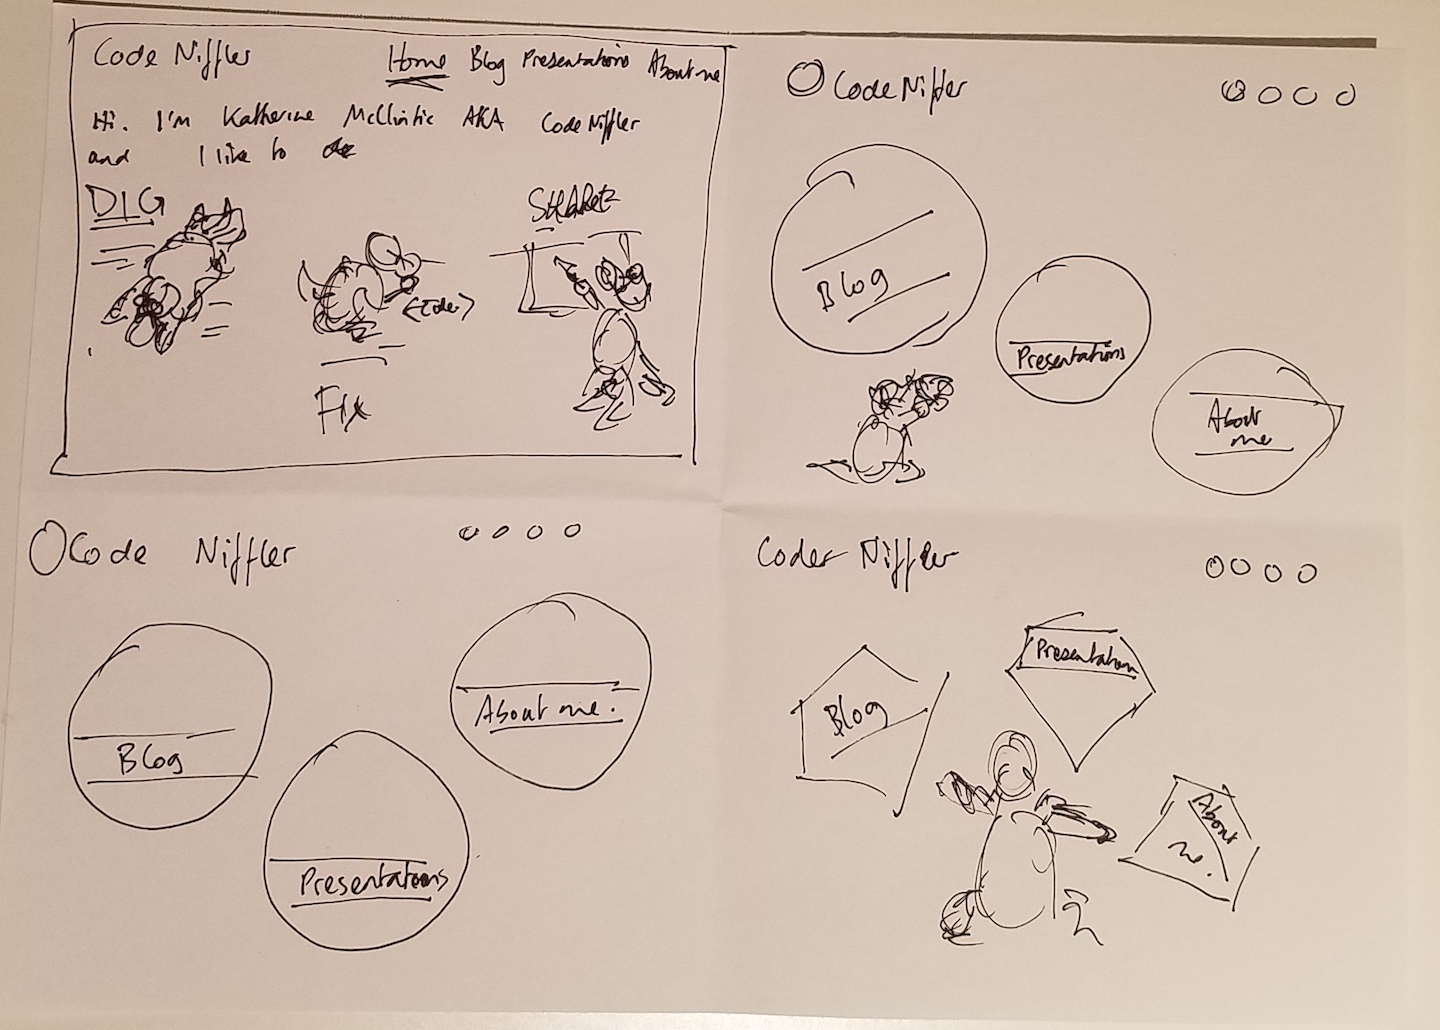 Code Niffler
Home Blog Presentations About me
Hi. I'm Katherine McClintic AKA CodeNiffler
and I like to
DIG
SHARE
<code>
FIX
CodeNiffler
Blog
Presentations
About
me
Code Niffler
Blog
Presentations
About me.
Coder Niffler
Blog
Presentation
About
me.